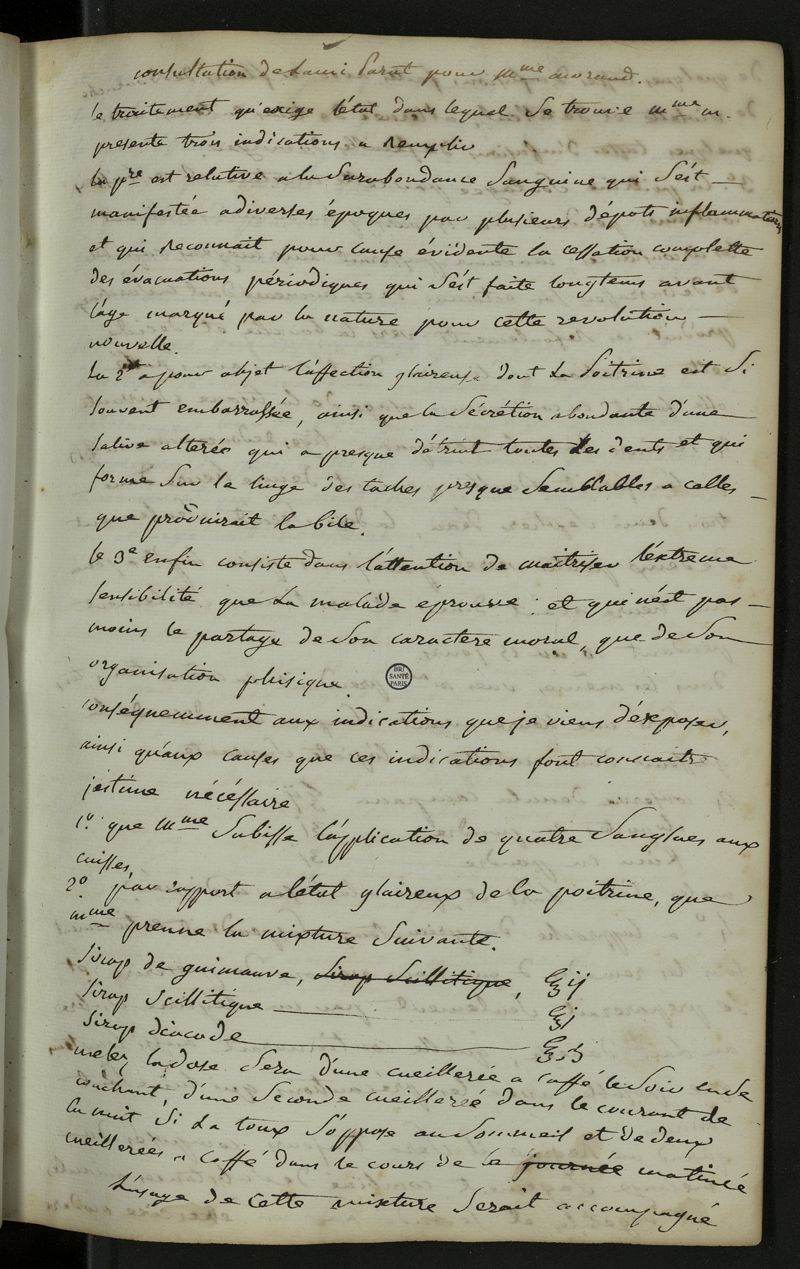 consultation de Lami Parat pour mme morand.
le traitement qu'exige l'état dans lequel se trouve mme m.
presente trois indications a remplir
la pre est relative a la surabondance sanguine qui s'est
manifestée a diverses époques par plusieurs dépots inflammatoires
et qui reconnait pour cause évidente la cessation complette
des évacuations périodiques qui s'est faite longtems avant
l'age marqué par la nature pour cette revolution
nouvelle.
la 2de a pour objet l'affection glaireuse dont la poitrine est si
souvent embarrassée, ainsi que la sécrétion abondante d'une
salive alterée qui a presque détruit toutes les dents et qui
forme sur le linge des taches presque semblables a celles
que produirait la bile.
le 3e enfin consiste dans l'attention de maitriser l'extreme
sensibilité que la malade éprouve et qui n'est pas
moins le partage de son caractere moral, que de son
organisation phisique.
conséquemment aux indications que je viens d'exposer,
ainsi qu'aux causes que ces indications font connaitre
j'estime nécéssaire
1o. que mme subisse l'application de quatre sangsues aux
cuisses,
2o par rapport a l'état glaireux de la poitrine, que
mme prenne la mixture suivante.
sirop de guimauve, sirop scillitique, ℥ij
sirop scillitique ℥j
sirop diacode ℥ß
melez la dose sera d'une cueillerée a caffé le soir en se
couchant, d'une seconde cueillerée dans le courant de
la nuit si la toux s'oppose au sommeil et de deux
cueillerées a caffé dans le cours de la journée matinée
L'usage de cette mixture serait accompagné
BIU
SANTÉ
PARIS